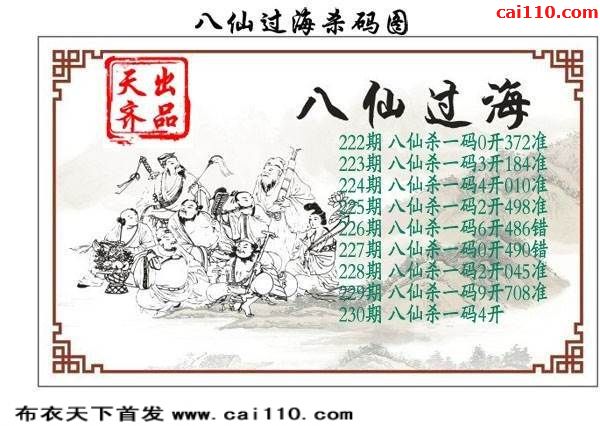 八仙过海杀码图
cai110.com
天齐
出品
八仙过海
222期 八仙杀一码0开372准
223期 八仙杀一码3开184准
224期 八仙杀一码4开010准
225期 八仙杀一码2开498准
226期 八仙杀一码6开486错
227期 八仙杀一码0开490错
228期 八仙杀一码2开045准
229期 八仙杀一码9开708准
230期 八仙杀一码4开
布衣天下首发 www.cai110.com